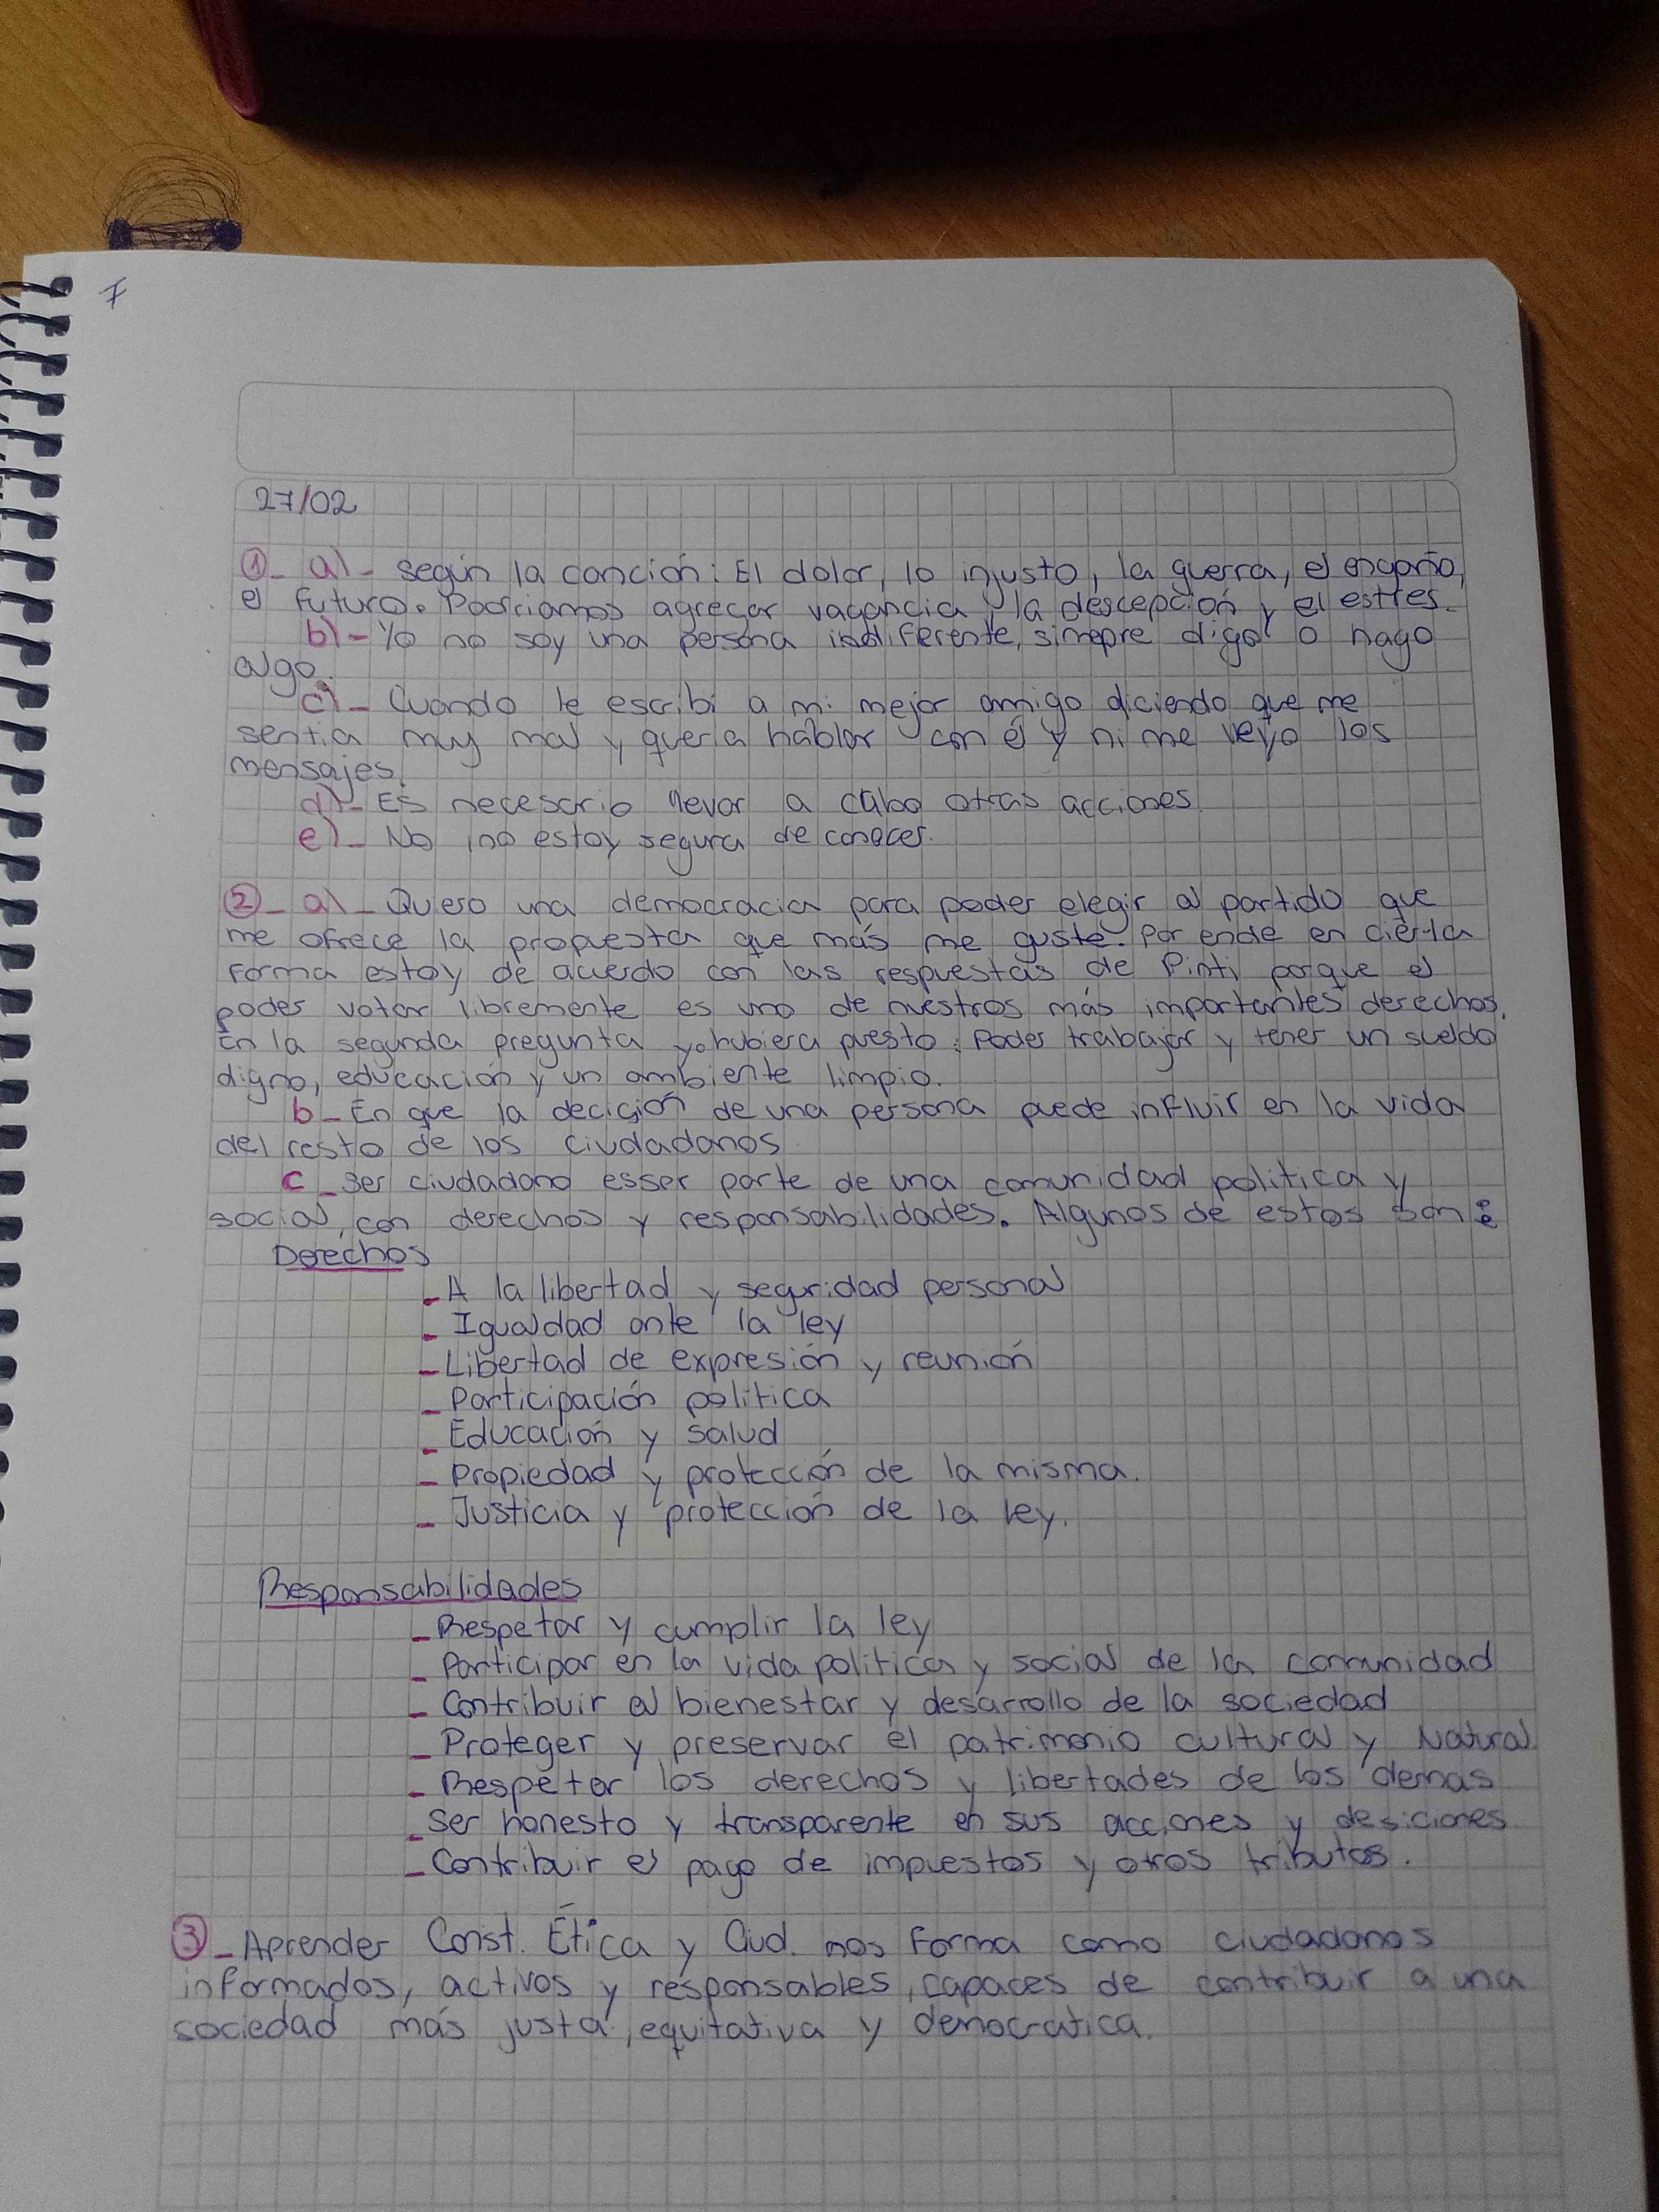 7
27/02
①- a)- según la canción: El dolor, lo injusto, la guerra, el engaño,
el futuro. Podríamos agregar vagancia, la descepción y el estres.
b)- Yo no soy una persona indiferente, simepre digo o hago
algo.
c)- Cuando le escribi a mi mejor amigo diciendo que me
sentia muy mal y queria hablar con él y ni me veyo los
mensajes.
d)- Es necesario llevar a cabo otras acciones.
e)- No, no estoy segura de conocer.
②- a)- Quiero una democracia para poder elegir al partido que
me ofrece la propuesta que más me guste. Por ende en cierta
forma estoy de acuerdo con las respuestas de Pinti porque el
poder votar libremente es uno de nuestros más importantes derechos.
En la segunda pregunta yo hubiera puesto: Poder trabajar y tener un sueldo
digno, educación y un ambiente limpio.
b- En que la decición de una persona puede influir en la vida
del resto de los ciudadanos
c- Ser ciudadano es ser parte de una comunidad politica y
social, con derechos y responsabilidades. Algunos de estos son:
Derechos
- A la libertad y seguridad personal
- Igualdad ante la ley
- Libertad de expresión y reunión
- Participación politica
- Educación y salud
- Propiedad y protección de la misma.
- Justicia y protección de la ley.
Responsabilidades
- Respetar y cumplir la ley
- Participar en la vida politica y social de la comunidad
- Contribuir al bienestar y desarrollo de la sociedad
- Proteger y preservar el patrimonio cultural y Natural
- Respetar los derechos y libertades de los demas
- ser honesto y transparente en sus acciones y desiciones
- Contribuir el pago de impuestos y otros tributos.
③- Aprender Const. Ética y Ciud. nos forma como ciudadanos
informados, activos y responsables, capaces de contribuir a una
sociedad más justa, equitativa y democratica.